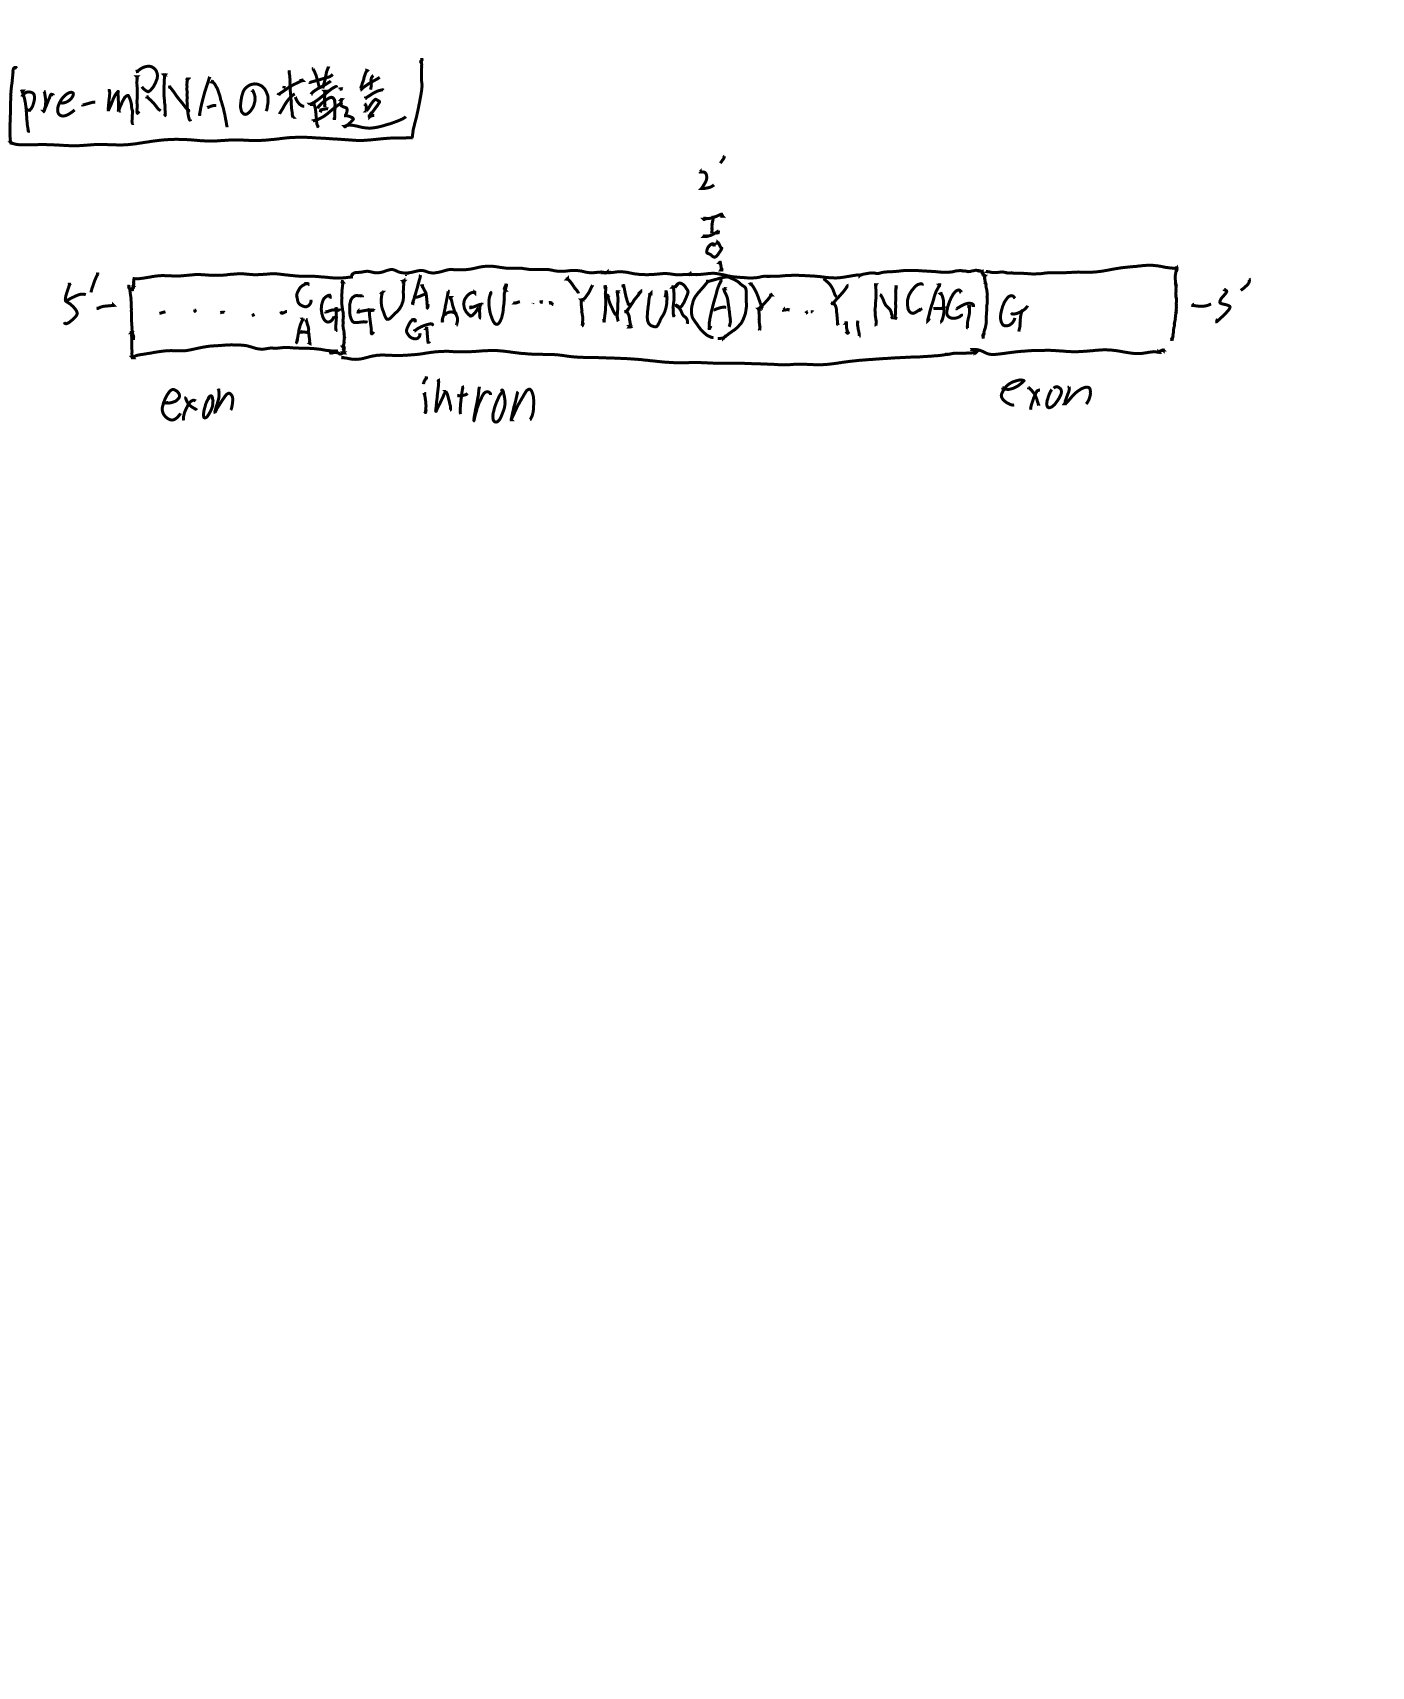 pre-mRNAの構造
2'
HO
5'- ..... C/A G GU A/G AGU... YNYUR A Y... Y11 NCAG G -3'
exon intron exon